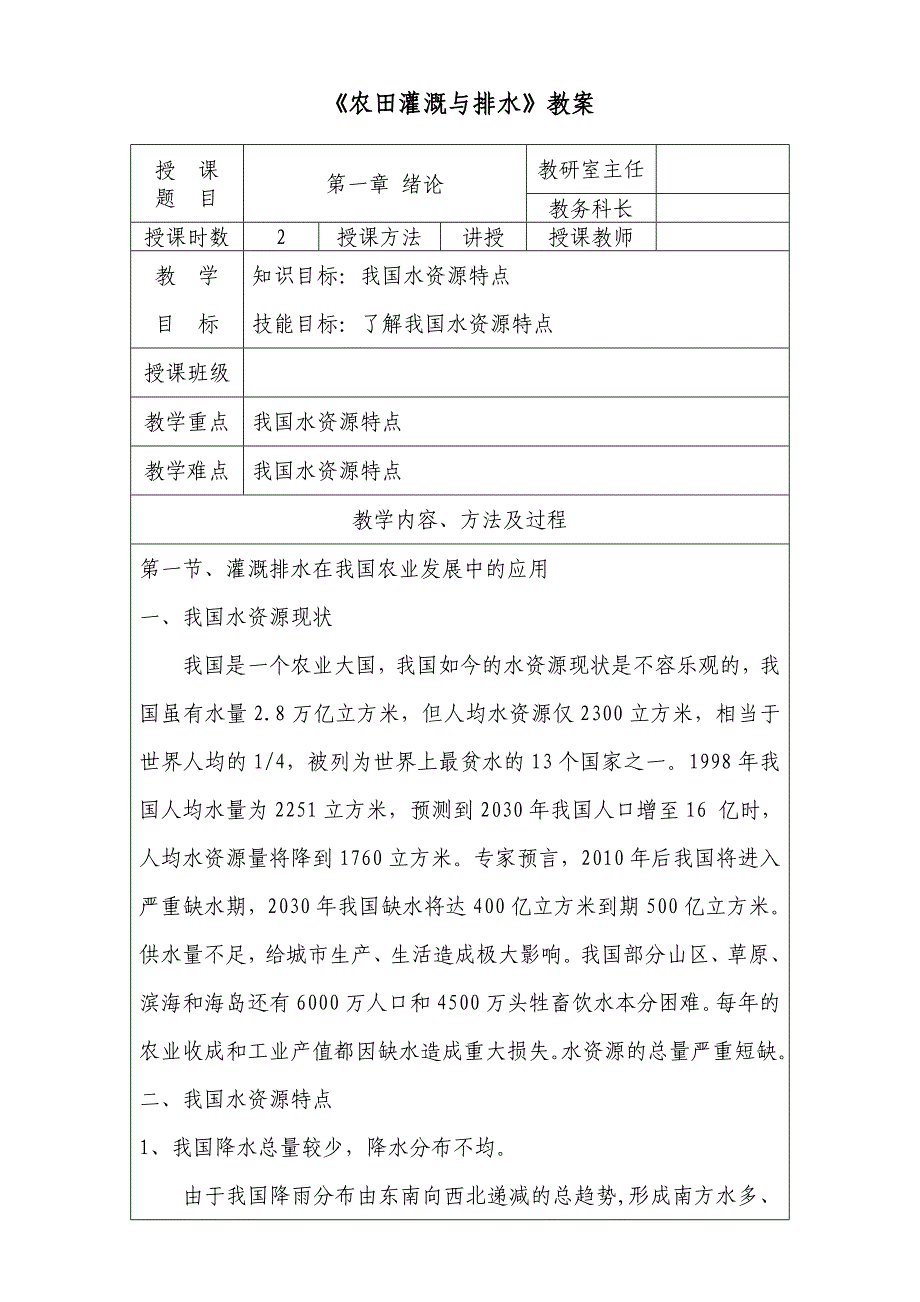 《农田灌溉与排水》教案
授 课
题 目
第一章 绪论
教研室主任
教务科长
授课时数
2
授课方法
讲授
授课教师
教 学
目 标
知识目标：我国水资源特点
技能目标：了解我国水资源特点
授课班级
教学重点
我国水资源特点
教学难点
我国水资源特点
教学内容、方法及过程
第一节、灌溉排水在我国农业发展中的应用
一、我国水资源现状
我国是一个农业大国，我国如今的水资源现状是不容乐观的，我
国虽有水量2.8万亿立方米，但人均水资源仅2300立方米，相当于
世界人均的1/4，被列为世界上最贫水的13个国家之一。1998年我
国人均水量为2251立方米，预测到2030年我国人口增至16 亿时，
人均水资源量将降到1760立方米。专家预言，2010年后我国将进入
严重缺水期，2030年我国缺水将达400亿立方米到期500亿立方米。
供水量不足，给城市生产、生活造成极大影响。我国部分山区、草原、
滨海和海岛还有6000万人口和4500万头牲畜饮水本分困难。每年的
农业收成和工业产值都因缺水造成重大损失。水资源的总量严重短缺。
二、我国水资源特点
1、我国降水总量较少，降水分布不均。
由于我国降雨分布由东南向西北递减的总趋势,形成南方水多、